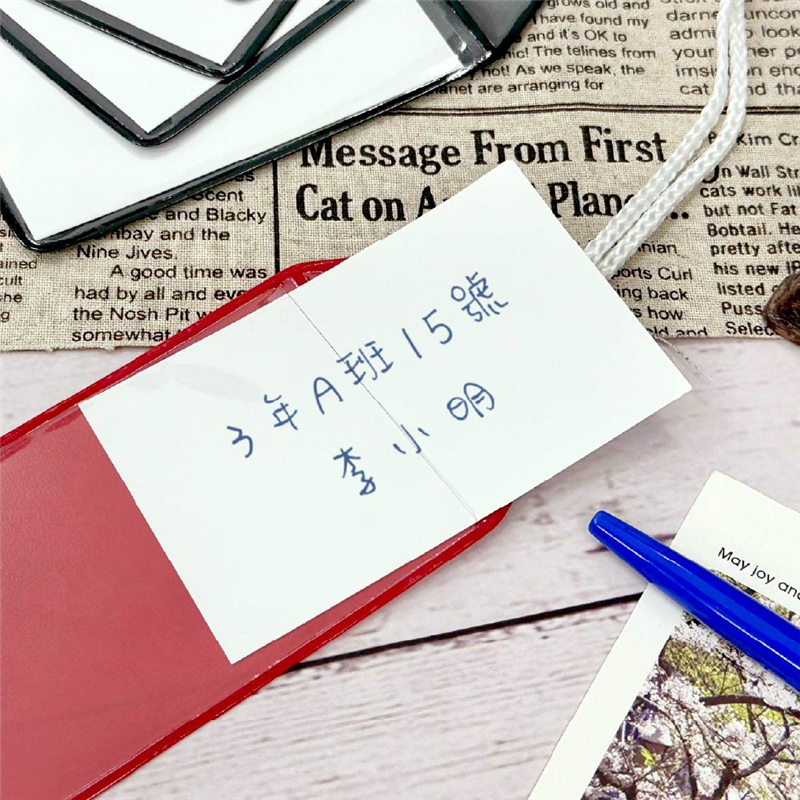 rows old and
have found my
and it's OK to
nic! The telines from
not! As we speak, the
anet are arranging for
darne
uncon
admi
to look
your
her po
imsi
on enc
cat
nd tha
Message From First
Cat on A
Plane
..
Kim Cr
n Wall Str
cats work li
but not Fat
Bobtail. He
pretty afte
his new IP
listed
Puss
Selec
Scent
and Blacky
bay and the
Nine Jives.
A good time was
had by all and eve
the Nosh Pit w
somewhat
ained
cult
she
g
nian
orts Curl
ing back
s how
ld and
3年A班15號
李小明
May joy and